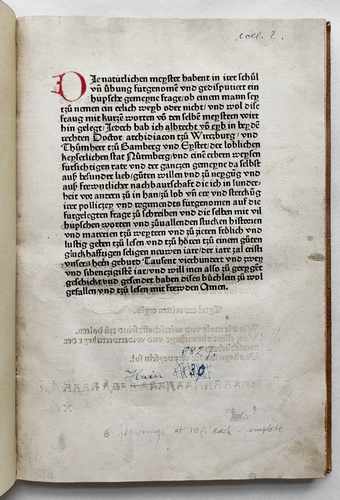 coll. 2.
DIe natürlichen meyster habent in irer schůl
vñ übung fürgenomē vnd gedisputiert ein
hüpsche gemeyne frage/ob einem mann sey
tzů nemen ein eelich weyb oder nicht/ vnd wol dise
fraug mit kurtzē worten võ den selbē meystern wirt
hin gelegt/ Jedoch hab ich albrecht võ eyb in beydē
rechten Doctor archidiacon tzů Wirtzburg/ vnd
Thůmherr tzů Bamberg vnd Eystet/ der loblichen
keyserlichen stat Nůrmberg/ vnd eīnē erbern weysen
fürsichtigen rate/ vnd der gantzen gemeyne da selbst
auß besunder lieb/ gůten willen vnd tzů neygūg/ vnd
auß freuntlicher nachbaurschaft die ich in sunder-
heit vor andern tzů in han/ tzů lob vñ ere vnd sterckūg
irer pollitzey vnd regiments fürgenomen auf die
fürgelegten frage tzů schreiben vnd die selben mit vil
hüpschen worten vnd tzůuallenden stucken historien
vnd materien tzů weyttern vnd tzů zieren frölich vnd
lustig geben tzů lesen vnd tzů hören tzů einem gůten
glückhafftigen seligen neuwen iare/ der iare zal cristi
vnsers herñ geburd Tausent vierhundert vnd zwey
vnd sibentzigiste iar/ vnd will men also tzů geeygēt
geschickt/ vnd gesendet haben dises büchlein tzů wol
gefallen vnd tzů lesen mit freuden Amen.
Hain 6830
at 10/- each - complete